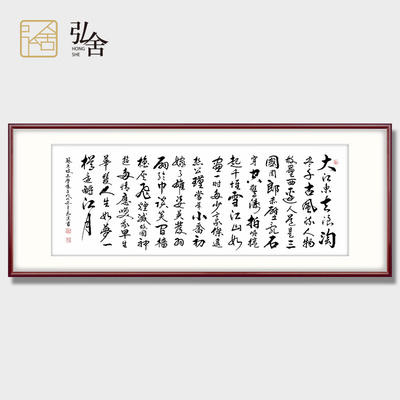 弘舍
HONG SHE
大江東去浪淘
尽千古風流人物
故壘西邊人道是三
國周郎赤壁亂石
穿空驚濤拍岸捲
起千堆雪江山如
畫一時多少豪傑遙
想公瑾當年小喬初
嫁了雄姿英發羽
扇綸巾談笑間檣
櫓灰飛煙滅故國神
遊多情應笑我早生
華髮人生如夢一
樽還酹江月